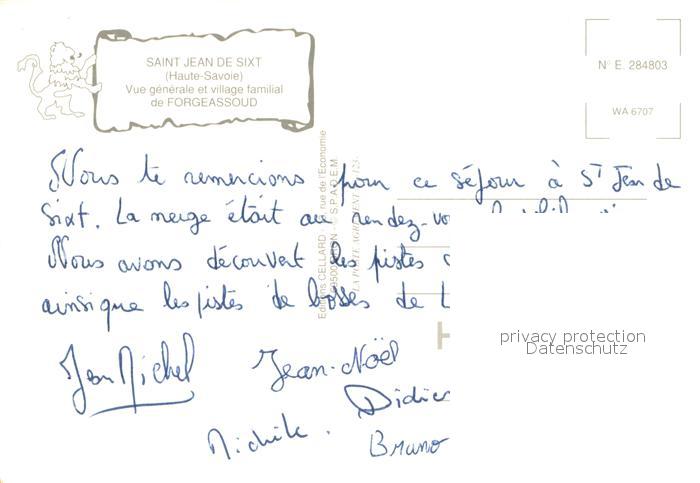 SAINT JEAN DE SIXT
(Haute-Savoie)
Vue générale et village familial
de FORGEASSOUD
N° E. 284803
WA 6707
Nous te remercions pour ce séjour à St Jean de
Sixt. La neige était au rendez-vo
Nous avons découvert les pistes
ainsi que les pistes de bosses de
Jean Michel
Jean-Noël
Didier
Michèle.
Bruno
Editions CELLARD rue de l'Economie
S.P.A.D.E.M.
privacy protection
Datenschutz